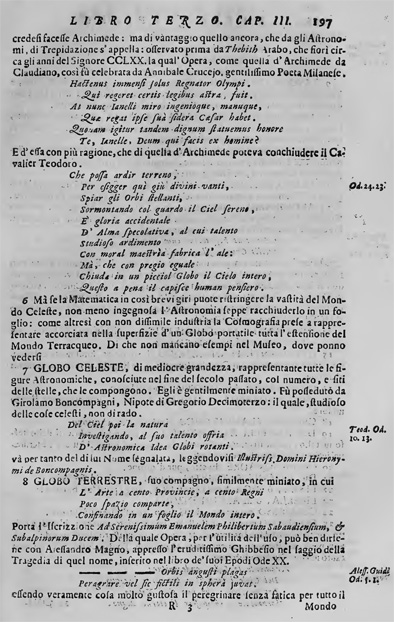 LIBRO TERZO. CAP. III. 197
credesi facesse Archimede: ma di vantaggio quello ancora, che da gli Astrono-
mi, di Trepidazione s'appella: osservato prima da Thebith Arabo, che fiorì cir-
ca gli anni del Signore CCLXX. la qual'Opera, come quella d'Archimede da
Claudiano, così fù celebrata da Annibale Crucejo, gentilissimo Poeta Milanese.
Hactenus immensi solus Regnator Olympi.
Qui regeret certis legibus astra, fuit.
At nunc Ianelli miro ingenioque, manuque,
Quæ regat ipse suà sidera Cæsar habet.
Quonam igitur tandem dignum statuemus honore
Te, Ianelle, Deum qui facis ex homine?
E d'essa con più ragione, che di quella d'Archimede poteva conchiudere il Ca-
valier Teodoro.
Che possa ardir terreno,
Per esigger quì giù divini vanti, Od. 24. 23.
Spiar gli Orbi stellanti,
Sormontando col guardo il Ciel sereno,
E' gloria accidentale
D' Alma specolativa, al cui talento
Studioso ardimento
Con moral maestria fabrica l' ale:
Mà, che con pregio eguale
Chiuda in un picciol Globo il Cielo intero,
Questo a pena il capisce human pensiero.
6 Mà se la Matematica in così brevi giri puote ristringere la vastità del Mon-
do Celeste, non meno ingegnosa l'Astronomia seppe racchiuderlo in un fo-
glio: come altresì con non dissimile industria la Cosmografia prese a rappre-
sentare accorciata nella superfizie d'un Globo portatile tutta l'estensione del
Mondo Terracqueo. Di che non mancano esempi nel Museo, dove ponno
vedersi
7 GLOBO CELESTE, di mediocre grandezza, rappresentante tutte le fi-
gure Astronomiche, conosciute nel fine del secolo passato, col numero, e siti
delle stelle, che le compongono. Egli è gentilmente miniato. Fù posseduto da
Girolamo Boncompagni, Nipote di Gregorio Decimoterzo: il quale, studioso
delle cose celesti, non di rado.
Del Ciel poi la natura
Investigando, al suo talento offria Teod. Od.
D' Astronomica Idea Globi rotanti. 10. 13.
và per tanto del di lui Nome segnalata, leggendovisi Illustriss. Domini Hierony-
mi de Boncompagnis.
8 GLOBO TERRESTRE, suo compagno, similmente miniato, in cui
L' Arte a cento Provincie, a cento Regni
Poco spazio comparte,
Confinando in un foglio il Mondo intero.
Porta l'Iscrizione Ad Serenissimum Emanuelem Philibertum Sabaudiensium, &
Subalpinorum Ducem. Della quale Opera, per l'utilità dell'uso, può ben dirse-
ne con Alessandro Magno, appresso l'eruditissimo Ghibbesio nel saggio della
Tragedia di quel nome, inserito nel libro de' suoi Epodi Ode XX.
Orbis angusti plagas Aless. Guidi
Peragrare vel sic fictili in spherâ juvat. Od. 5. 1.
essendo veramente cosa molto gustosa il peregrinare senza fatica per tutto il
R 3 Mondo